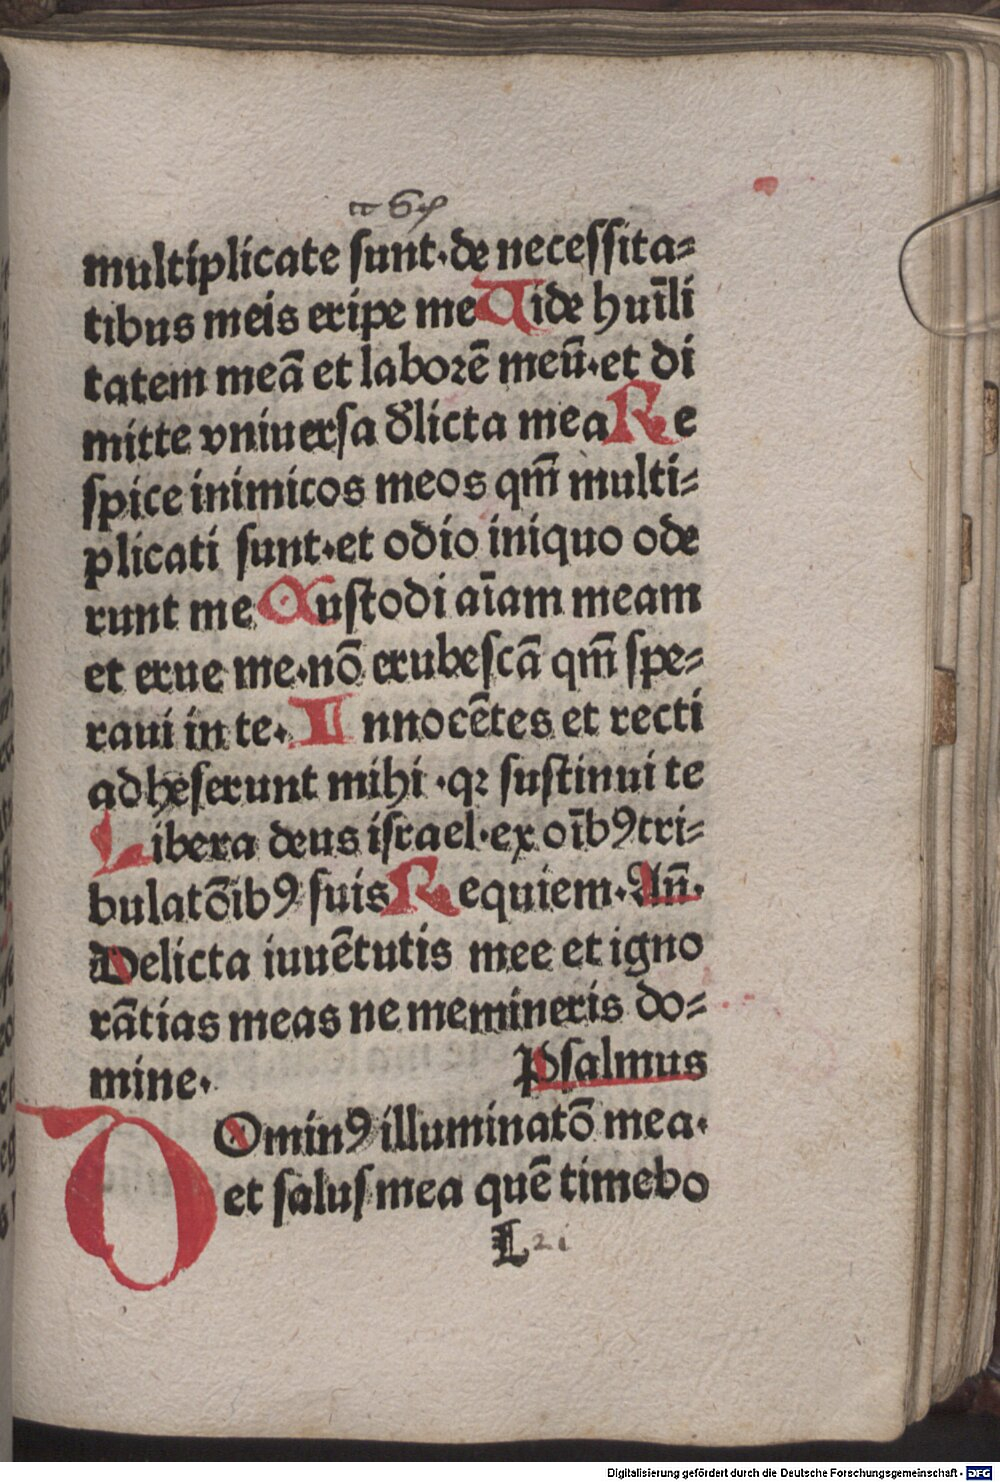 multiplicate sunt·de necessita-
tibus meis eripe me Uide huīli
tatem meā et laborē meū·et di
mitte vniuersa dʼlicta mea Re
spice inimicos meos qm̄ multi-
plicati sunt·et odio iniquo ode
runt me Custodi aīam meam
et erue me·nō erubescā qm̄ spe-
raui in te· Innocētes et recti
adheserunt mihi ·qꝛ sustinui te
Libera deus israel·ex oībꝰ tri-
bulatōibꝰ suis Requiem·An̄·
Delicta iuuētutis mee et igno
rātias meas ne memineris do-
mine· Psalmus
DOminꝰ illuminatō mea·
et salus mea quē timebo
L 21
Digitalisierung gefördert durch die Deutsche Forschungsgemeinschaft - DFG